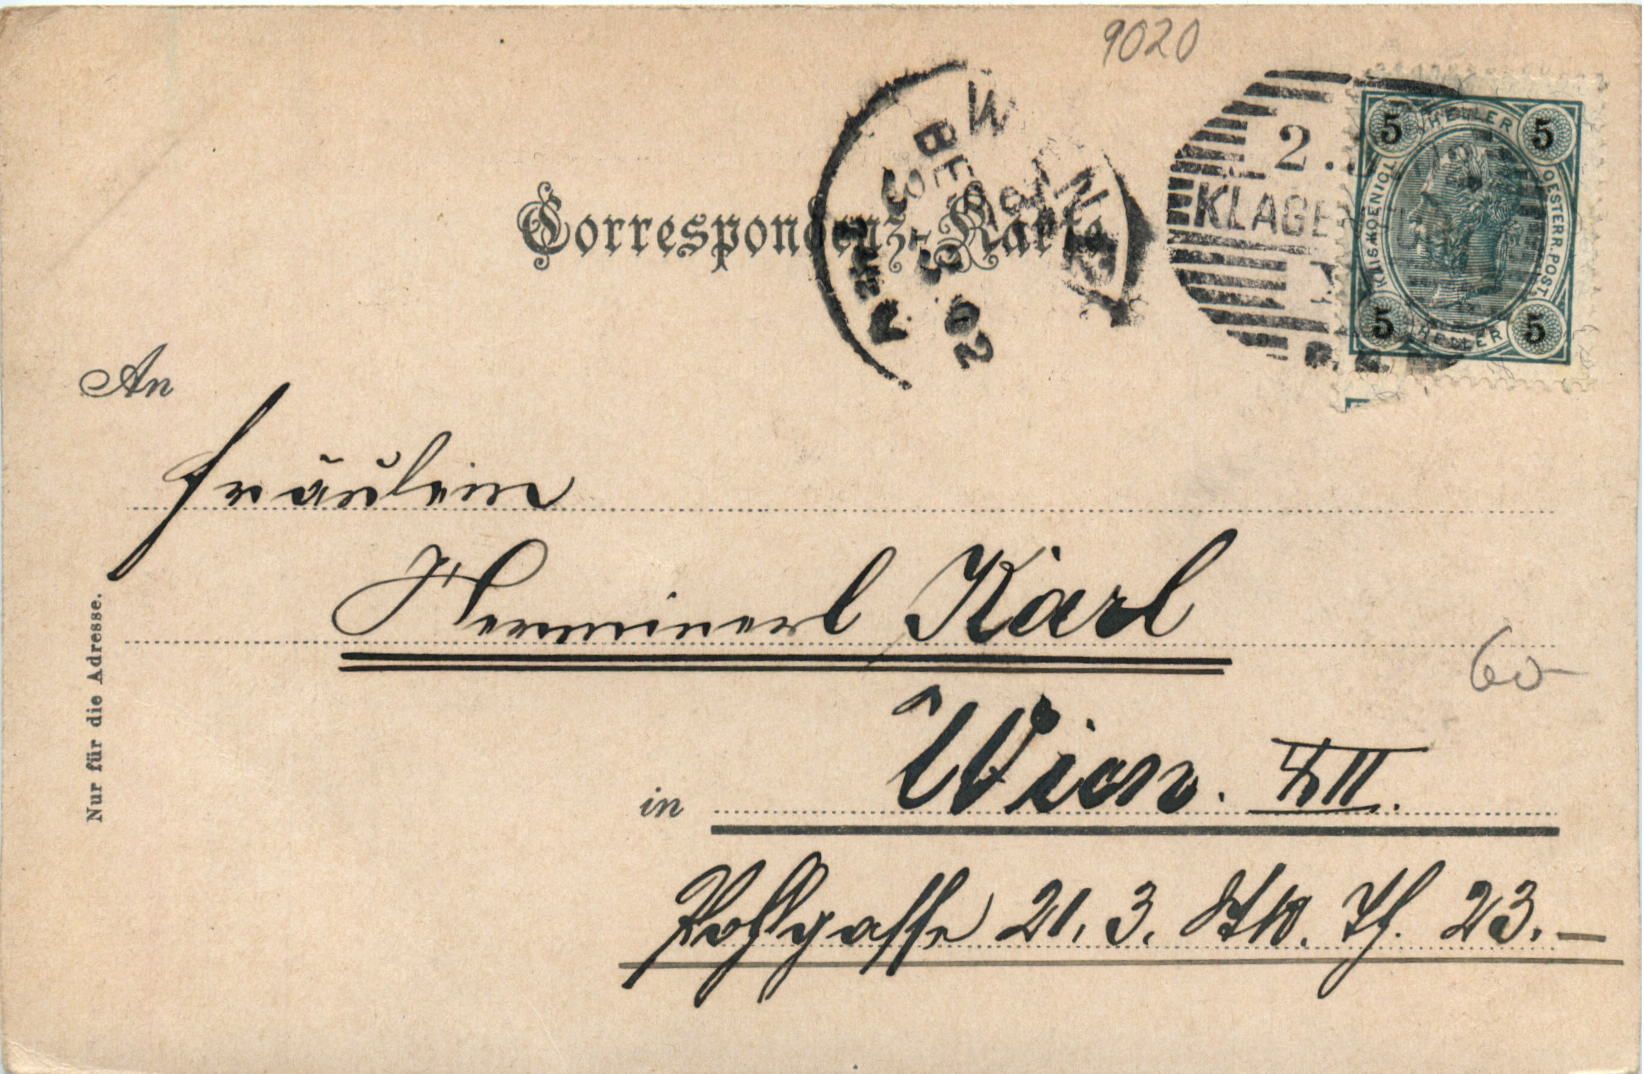 9020
2.
KLAGENFURT
5 HELLER 5
KAIS. KOENIGL. OESTERR. POST.
5 HELLER 5
WIEN
BESTELLT
3. 5. 02
Correspondenz-Karte
An
Fräulein
Herminerl Karl
60
Wien. XII.
in
Nur für die Adresse.
21, 3. Stk. Th. 23.